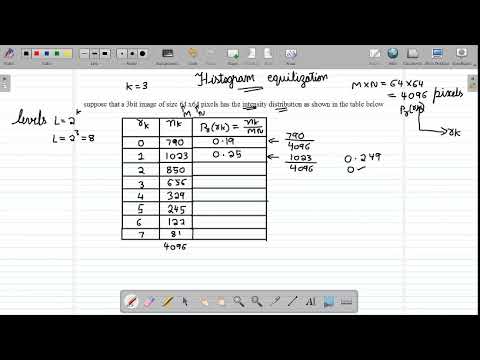 Histogram equilization
k = 3
M×N = 64×64
= 4096 pixels
suppose that a 3bit image of size 64 x64 pixels has the intensity distribution as shown in the table below
M N
Pr(rk)
rk
levels L = 2^k
L = 2^3 = 8
rk nk Pr(rk) = nk/MN
0 790 0.19 ← 790/4096
1 1023 0.25 ← 1023/4096 0.249
0.
2 850
3 656
4 329
5 245
6 122
7 81
4096